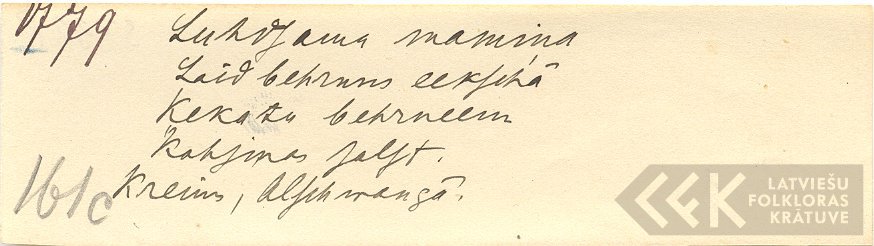 779
Luhdsama mamiņa
Laid behrnus eekschā
Ķekatu behrneem
Kahjinas salst.
161c
Kreims, Alschwangā.
LATVIEŠU
FOLKLORAS
KRĀTUVE